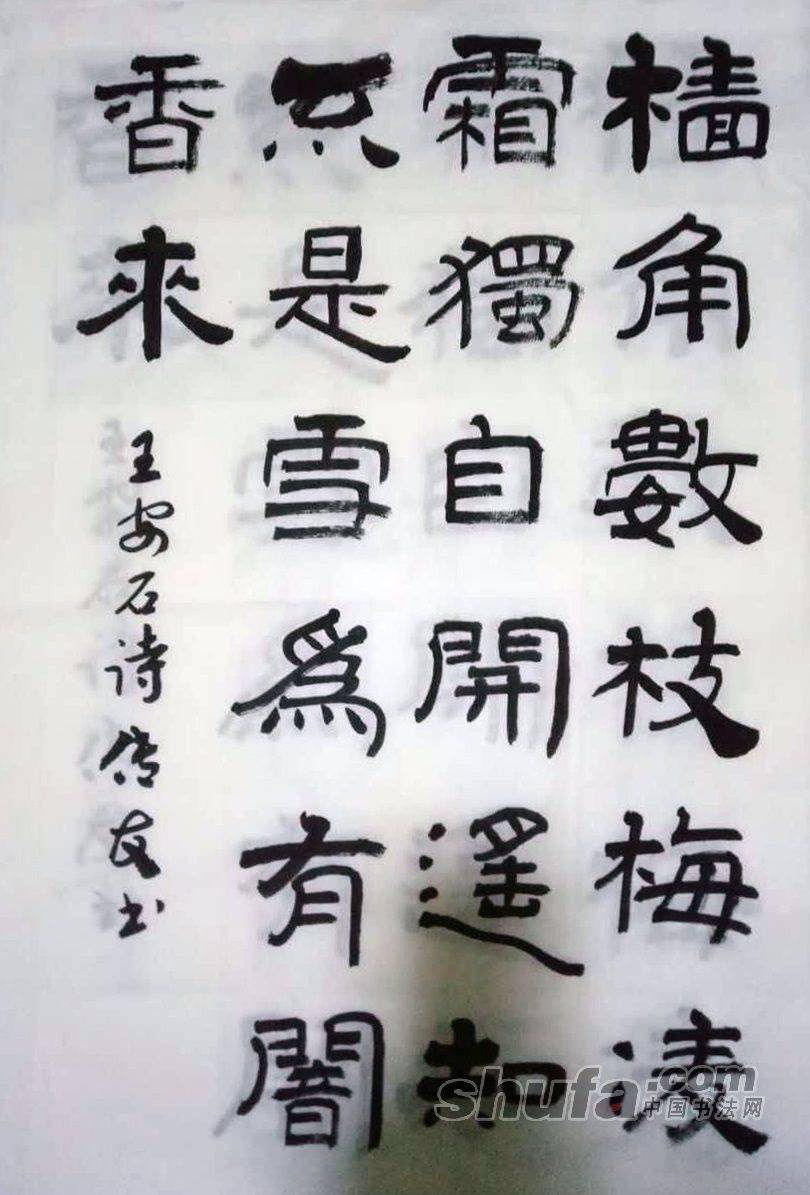 檣角數枝梅凌
霜獨自開遙知
不是雪爲有闇
香來
王安石诗友书
shufa.com
中国书法网